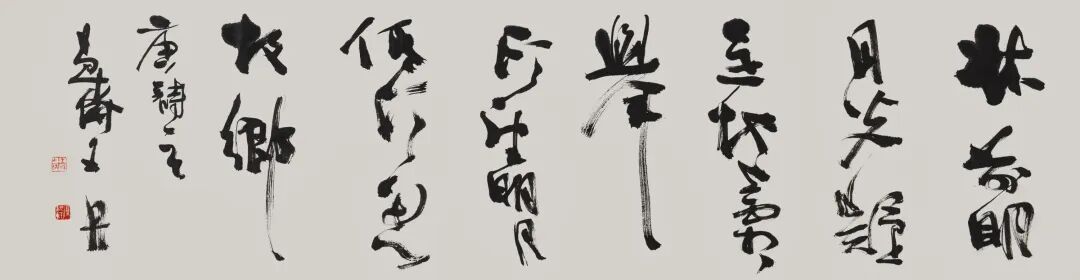 牀前明
月光疑
是地上霜
舉
頭望明月
低頭思
故鄉
唐詩